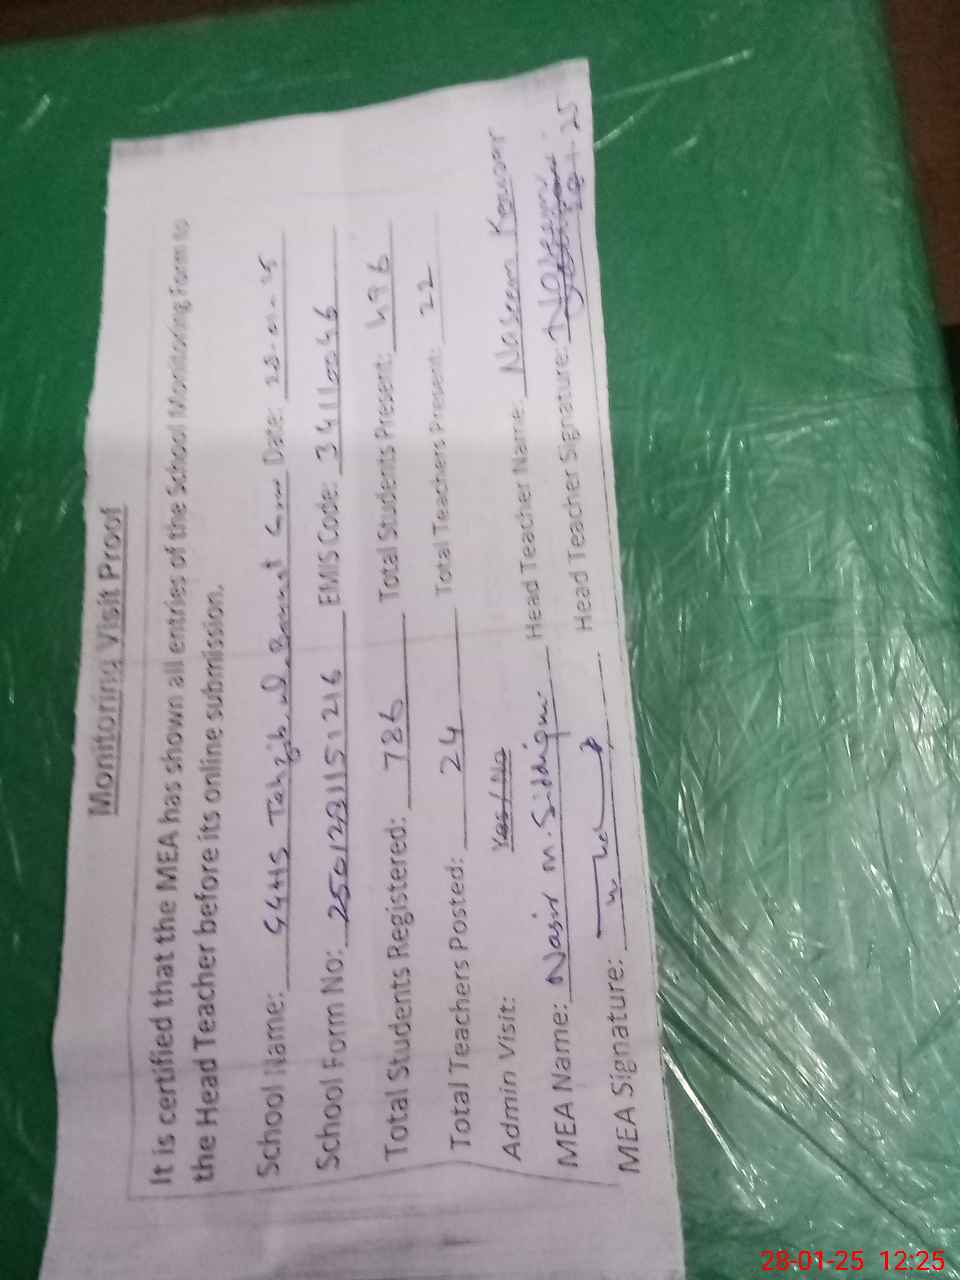 Monitoring Visit Proof
It is certified that the MEA has shown all entries of the School Monitoring Form to
the Head Teacher before its online submission.
School Name: GGHS Tahzib ul Banat Date: 28-01-25
School Form No: EMIS Code: 34110046
Total Students Registered: 786 Total Students Present: 496
Total Teachers Posted: 24 Total Teachers Present: 22
Admin Visit: Yes / No Head Teacher Name: Naseem Kousar
MEA Name: Nasir M. Siddique Head Teacher Signature: Naseem
MEA Signature:
28-01-25 12:25